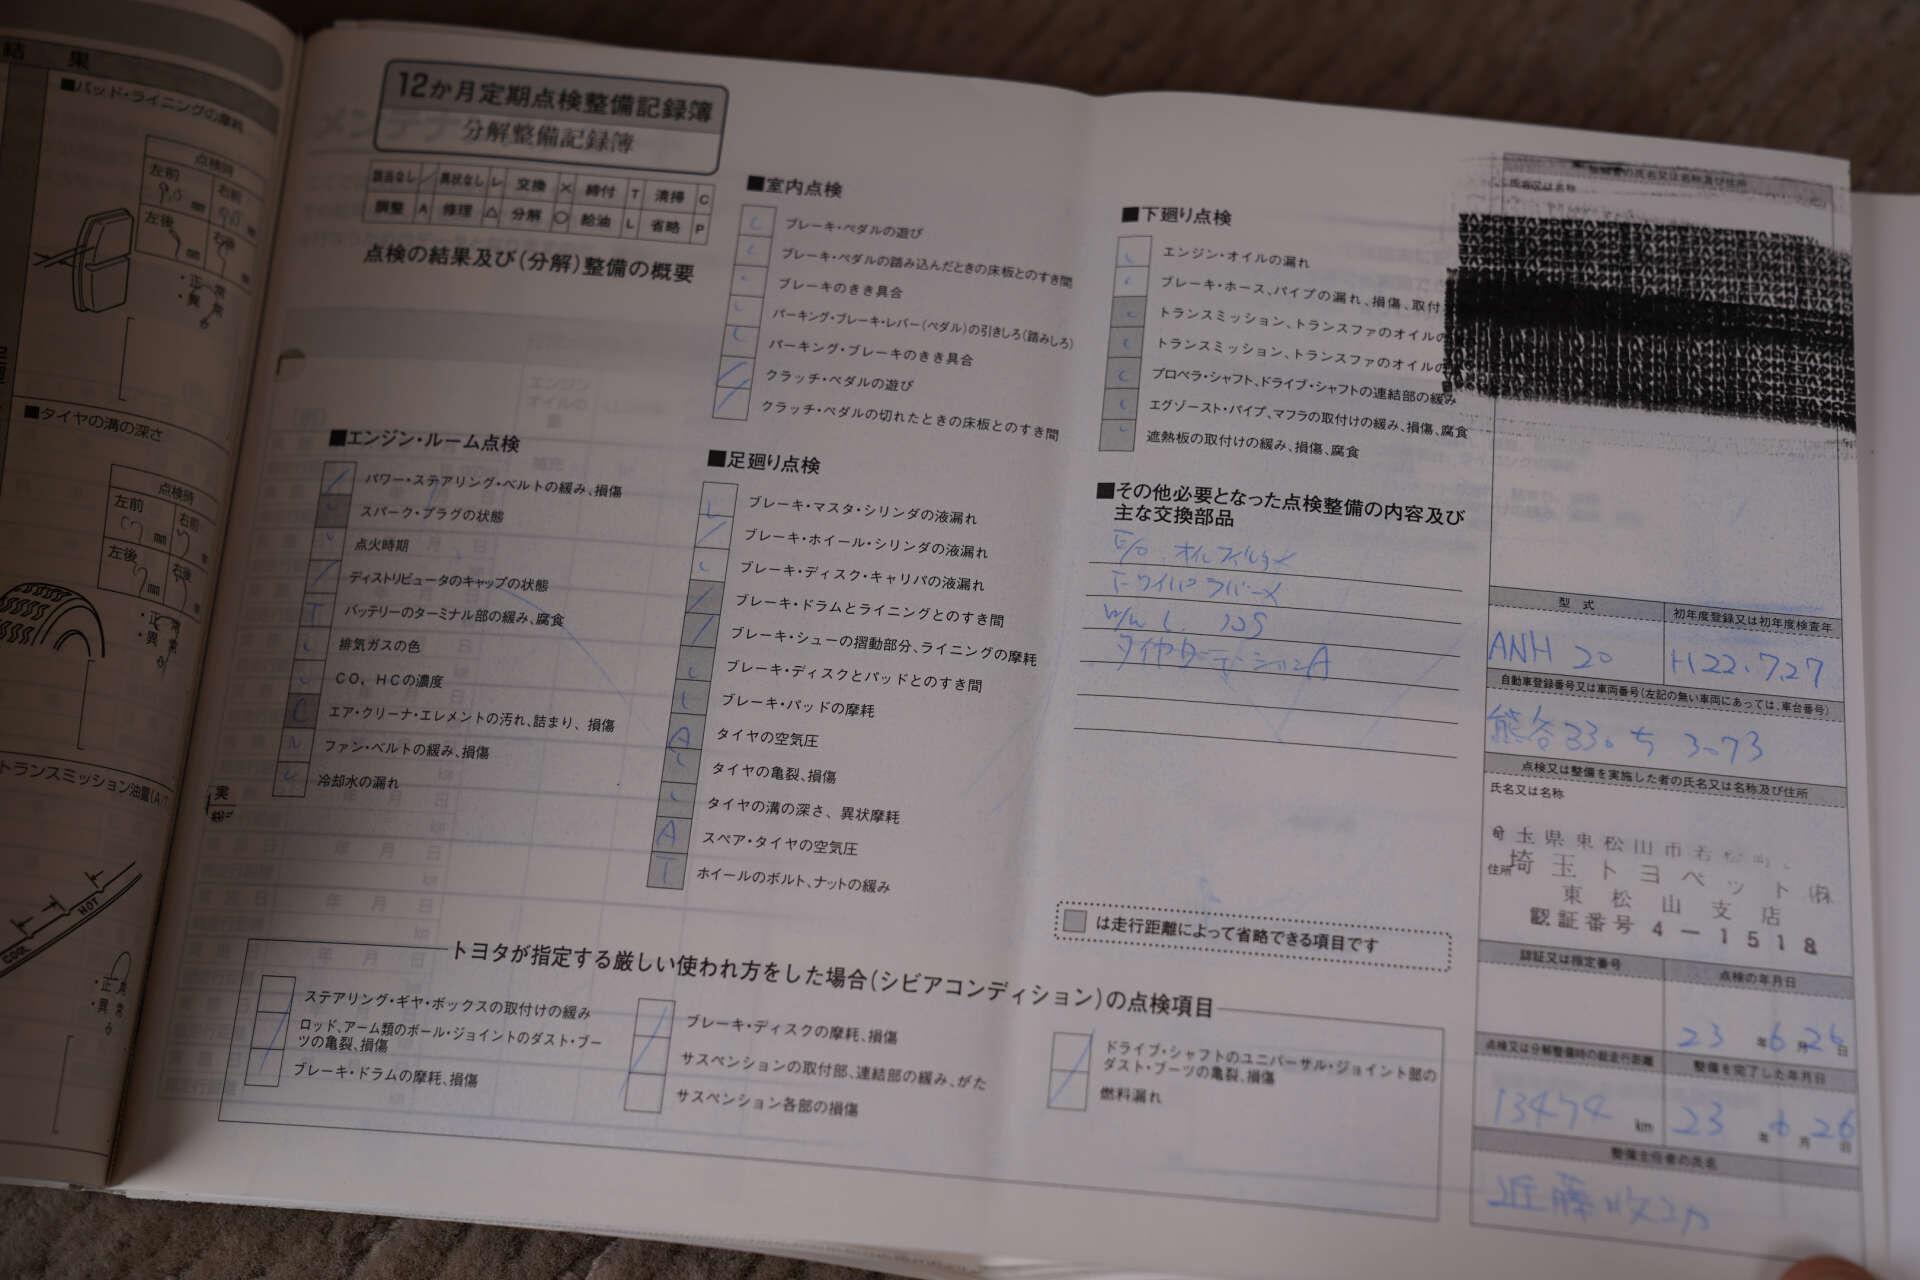 結果
■パッド・ライニングの摩耗
点検時
左前 9.0 mm 右前 9.0
左後 右後
・正常
・異
■タイヤの溝の深さ
点検時
左前 mm 右前
左後 mm 右後
・正常
・異
トランスミッション油量(A/T
HOT
COOL
・正常
・異常
12か月定期点検整備記録簿
分解整備記録簿
該当なし / 異状なし レ 交換 × 締付 T 清掃 C
調整 A 修理 △ 分解 ○ 給油 L 省略 P
点検の結果及び(分解)整備の概要
■エンジン・ルーム点検
パワー・ステアリング・ベルトの緩み、損傷
スパーク・プラグの状態
点火時期
ディストリビュータのキャップの状態
T バッテリーのターミナル部の緩み、腐食
排気ガスの色
CO, HCの濃度
C エア・クリーナ・エレメントの汚れ、詰まり、損傷
ファン・ベルトの緩み、損傷
冷却水の漏れ
■室内点検
ブレーキ・ペダルの遊び
ブレーキ・ペダルの踏み込んだときの床板とのすき間
ブレーキのきき具合
パーキング・ブレーキ・レバー(ペダル)の引きしろ(踏みしろ)
パーキング・ブレーキのきき具合
クラッチ・ペダルの遊び
クラッチ・ペダルの切れたときの床板とのすき間
■足廻り点検
ブレーキ・マスタ・シリンダの液漏れ
ブレーキ・ホイール・シリンダの液漏れ
ブレーキ・ディスク・キャリパの液漏れ
ブレーキ・ドラムとライニングとのすき間
ブレーキ・シューの摺動部分、ライニングの摩耗
ブレーキ・ディスクとパッドとのすき間
ブレーキ・パッドの摩耗
A タイヤの空気圧
タイヤの亀裂、損傷
タイヤの溝の深さ、異状摩耗
A スペア・タイヤの空気圧
T ホイールのボルト、ナットの緩み
■下廻り点検
エンジン・オイルの漏れ
ブレーキ・ホース、パイプの漏れ、損傷、取付
トランスミッション、トランスファのオイルの
トランスミッション、トランスファのオイルの
プロペラ・シャフト、ドライブ・シャフトの連結部の緩み
エグゾースト・パイプ、マフラの取付けの緩み、損傷、腐食
遮熱板の取付けの緩み、損傷、腐食
■その他必要となった点検整備の内容及び
主な交換部品
E/O. オイルフィルタ×
F ワイパ ラバー×
タイヤローテーションA
は走行距離によって省略できる項目です
トヨタが指定する厳しい使われ方をした場合(シビアコンディション)の点検項目
ステアリング・ギヤ・ボックスの取付けの緩み
ロッド、アーム類のボール・ジョイントのダスト・ブー
ツの亀裂、損傷
ブレーキ・ドラムの摩耗、損傷
ブレーキ・ディスクの摩耗、損傷
サスペンションの取付部、連結部の緩み、がた
サスペンション各部の損傷
ドライブ・シャフトのユニバーサル・ジョイント部の
ダスト・ブーツの亀裂、損傷
燃料漏れ
の氏名又は名称及び住所
氏名又は名称
型式 初年度登録又は初年度検査年
ANH 20 H22.7.27
自動車登録番号又は車両番号(左記の無い車両にあっては、車台番号)
熊谷 330 ち 3073
点検又は整備を実施した者の氏名又は名称及び住所
氏名又は名称
埼玉県東松山市若松町
住所 埼玉トヨペット(株
東松山支店
認証番号 4-1518
認証又は指定番号 点検の年月日
23 年 6 月 26 日
点検又は分解整備時の総走行距離 整備を完了した年月日
13474 km 23 年 6 月 26 日
整備主任者の氏名
近藤